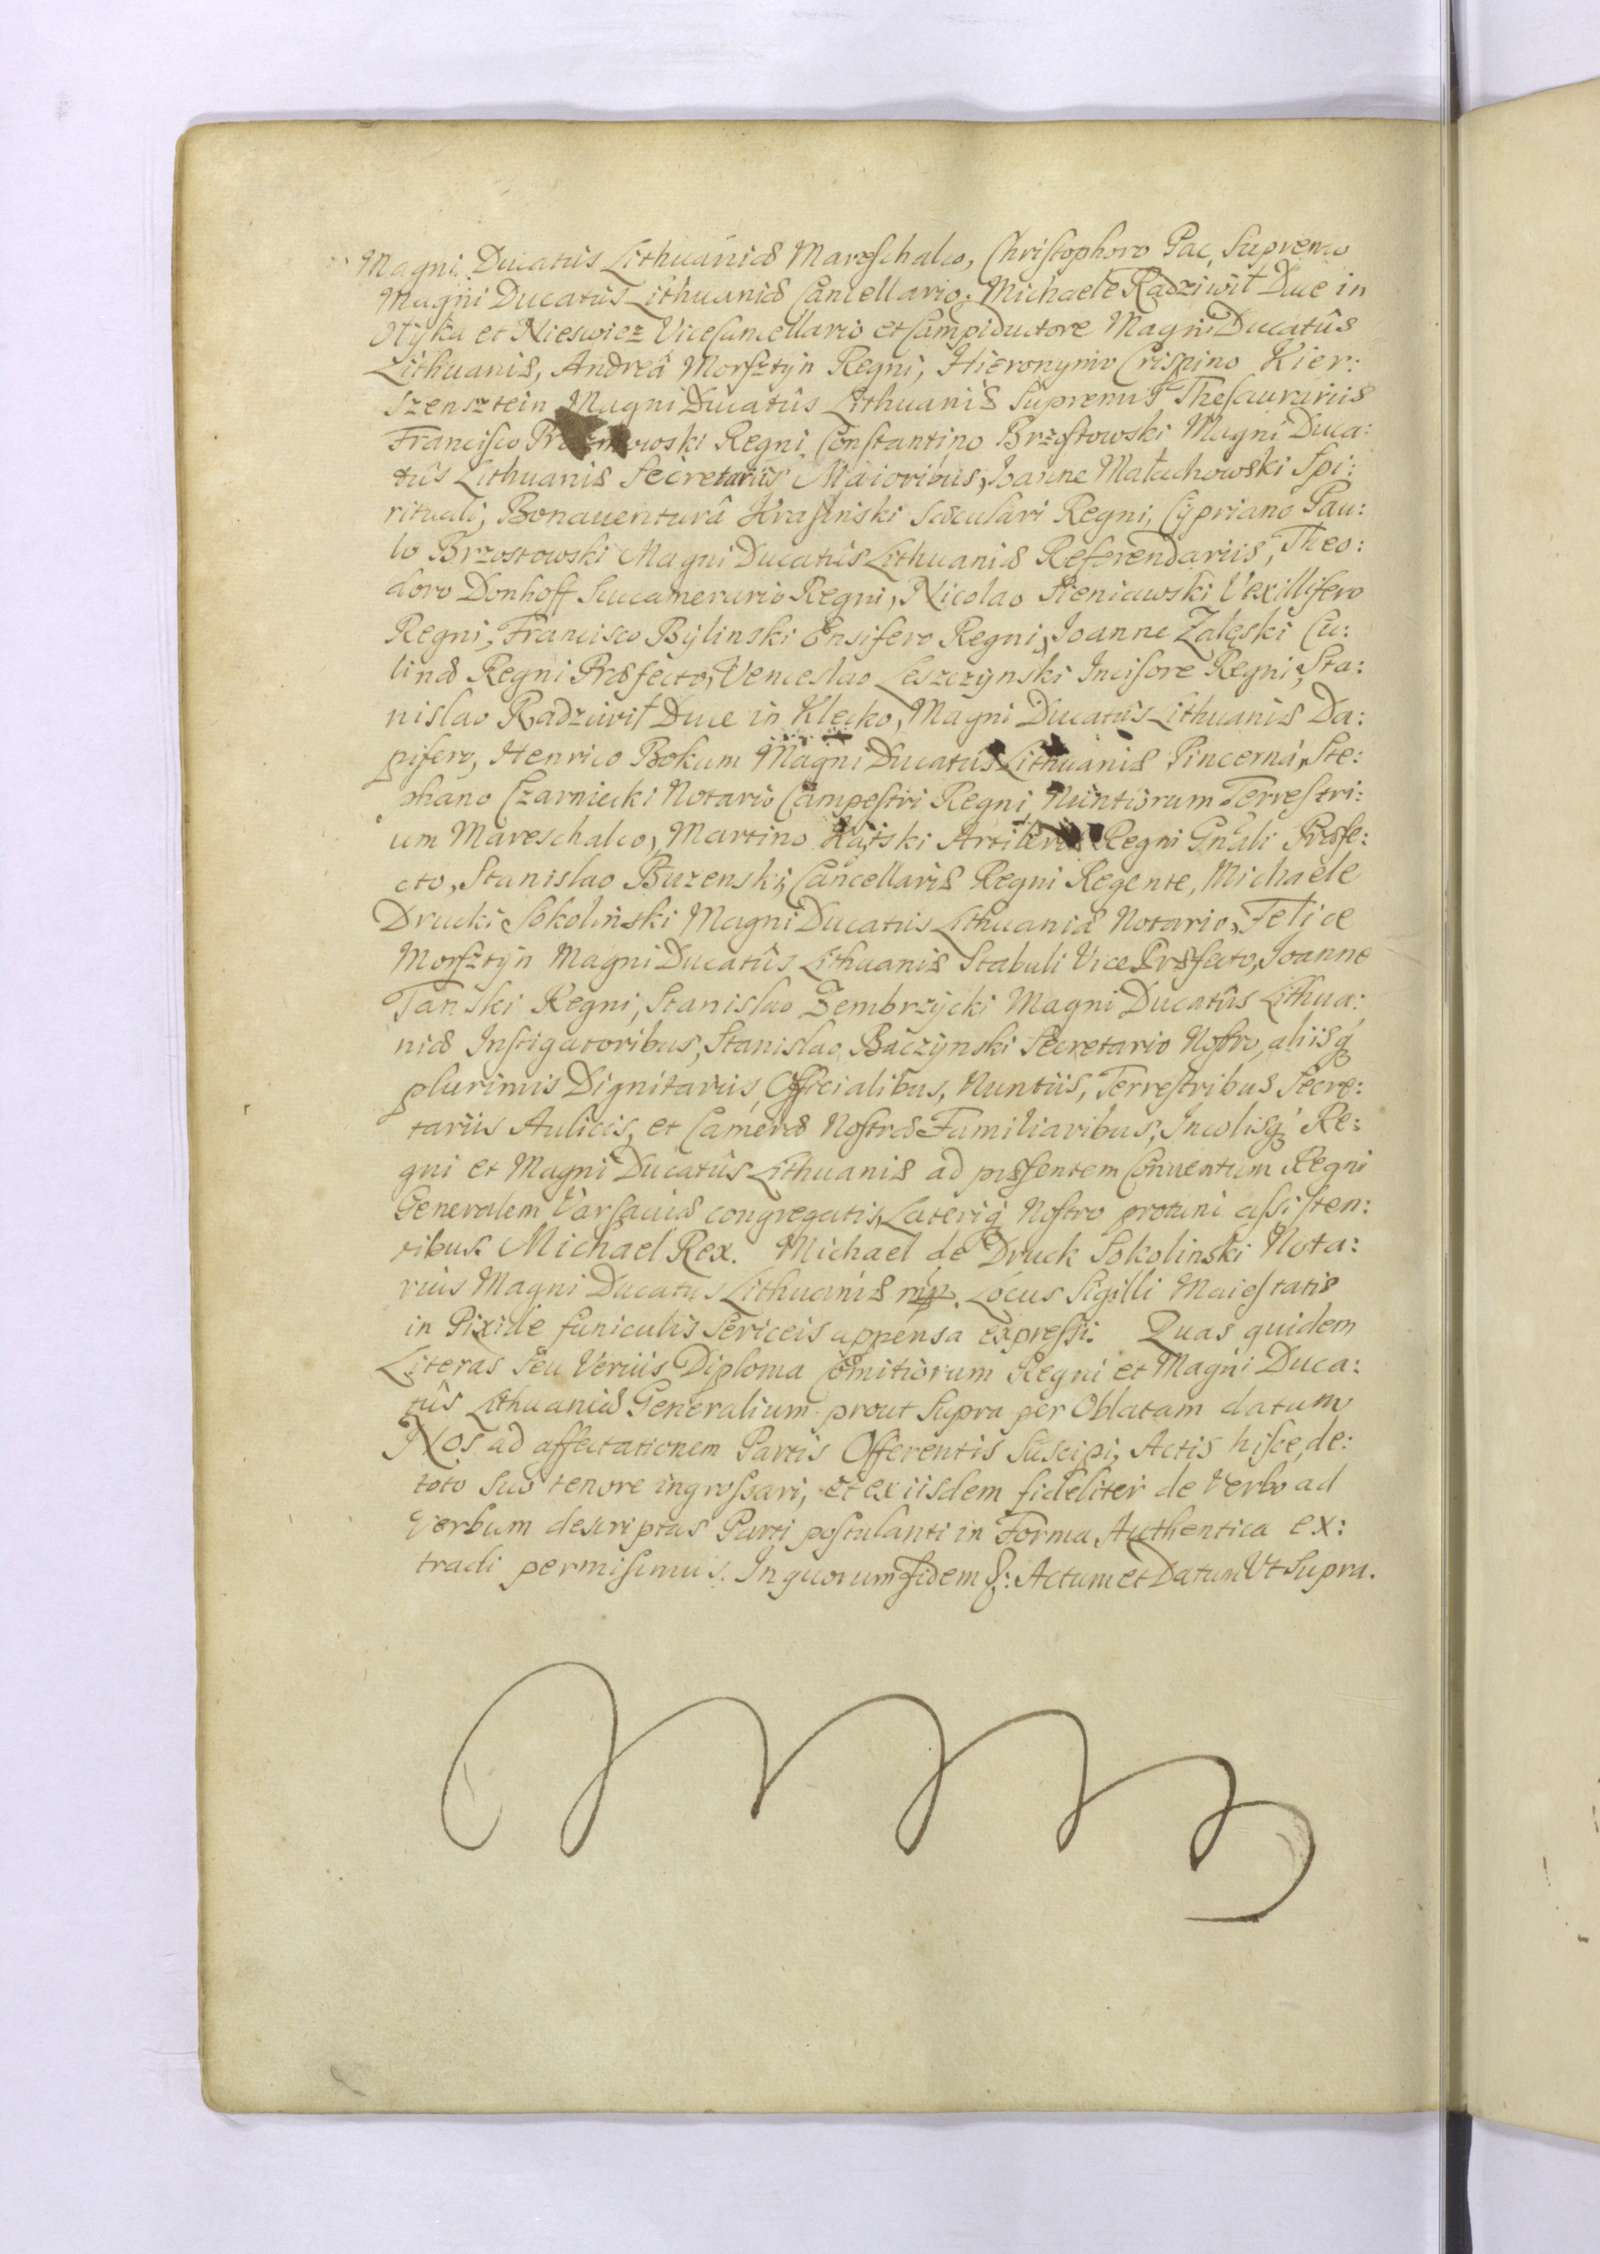 Magni Ducatûs Lithuaniæ Mareschalco, Christophoro Pac, Supremo
Magni Ducatûs Lithuaniæ Cancellario, Michaele Radziwił Duce in
Ołyka et Nieswiez ViceCancellario et Campiductore Magni Ducatûs
Lithuaniæ, Andreâ Morsztyn Regni, Hieronymo Crispino Kier:
szensztein Magni Ducatûs Lithuaniæ Supremis Thesaurariis
Francisco Regni, Constantino Brzostowski Magni Duca:
tûs Lithuaniæ Secretariis Maioribus, Joanne Małachowski Spi:
rituali, Bonaventurâ Krasinski Sæculari Regni, Cypriano Pau:
lo Brzostowski Magni Ducatûs Lithuaniæ Referendariis, Theo:
doro Donhoff Succamerario Regni, Nicolao Sieniawski Vexillifero
Regni, Francisco Bÿlinski Ensifero Regni, Joanne Zaleski Cu:
linæ Regni Præfecto, Venceslao Leszczÿnski Incisore Regni, Sta:
nislao Radziwił Duce in Klecko, Magni Ducatûs Lithuaniæ Da:
pifero, Henrico Bokum Magni Ducatûs Lithuaniæ Pincernâ, Ste:
phano Czarniecki Notario Campestri Regni, Nuntiorum Terrestri:
um Mareschalco, Martino Kątski Artileriæ Regni Gnäli Præfe:
cto, Stanislao Buzenski, Cancellariæ Regni Regente, Michaele
Drucki Sokolinski Magni Ducatus Lithuaniæ Notario, Felice
Morsztÿn Magni Ducatûs Lithuaniæ Stabuli Vice Præfecto, Joanne
Tanski Regni, Stanislao Zembrzÿcki Magni Ducatûs Lithua:
niæ Instigatoribus, Stanislao Baczÿnski Secretario Nostro, aliisq́
plurimis Dignitariis, Officialibus, Nuntiis, Terrestribus Secre:
tariis Aulicis, et Cameræ Nostræ Familiaribus, Incolisq́ Re:
gni et Magni Ducatûs Lithuaniæ ad præsentem Conventum Regni
Generalem Varsaviæ congregatis, Lateriq́ Nostro protuni assisten:
tibus. Michael Rex. Michael de Druck Sokolinski Nota:
rius Magni Ducatus Lithuaniæ mp. Locus Sigilli Maiestatis
in Pixide funiculis Sericeis appensa expressi. Quas quidem
Literas Seu Verius Diploma Comitiorum Regni et Magni Duca:
tûs Lithuaniæ Generalium prout Supra per Oblatam datum
Nos ad affectationem Partis Offerentis Suscipi, Actis hisce, de:
toto suo tenore ingrossari, et ex iisdem fideliter de Verbo ad
Verbum descriptas Parti postulanti in Forma Authentica ex:
tradi permisimus. In quorum Fidem &: Actum et Datum Ut Supra.